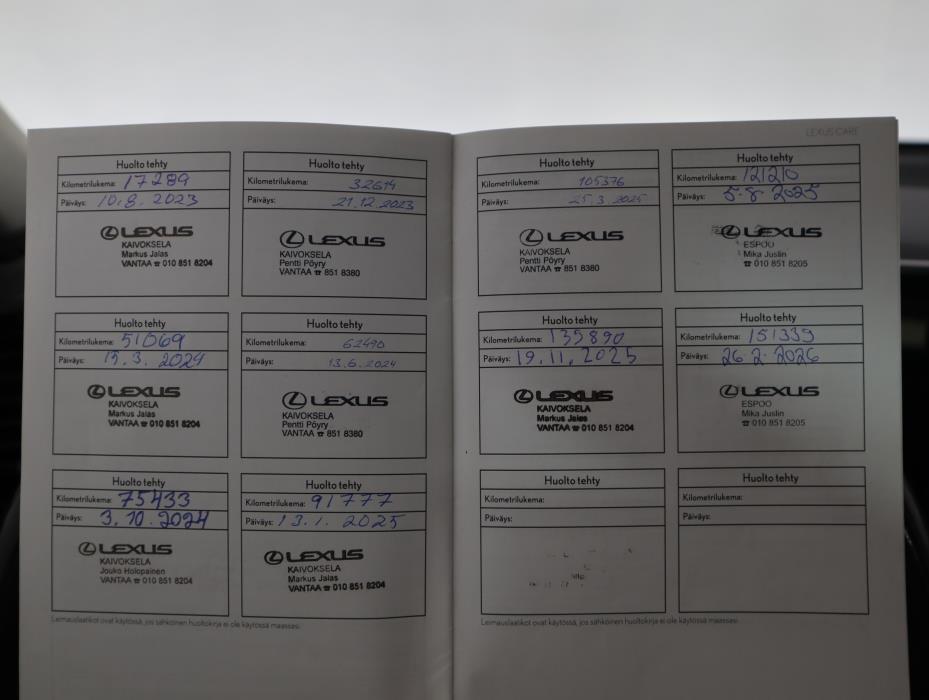 LEXUS CARE
Huolto tehty
Kilometrilukema: 17289
Päiväys: 10.8. 2023
LEXUS
KAIVOKSELA
Markus Jalas
VANTAA ☎ 010 851 8204
Huolto tehty
Kilometrilukema: 32614
Päiväys: 21.12.2023
LEXUS
KAIVOKSELA
Pentti Pöyry
VANTAA ☎ 851 8380
Huolto tehty
Kilometrilukema: 51069
Päiväys: 15.3. 2024
LEXUS
KAIVOKSELA
Markus Jalas
VANTAA ☎ 010 851 8204
Huolto tehty
Kilometrilukema: 62490
Päiväys: 13.6.2024
LEXUS
KAIVOKSELA
Pentti Pöyry
VANTAA ☎ 851 8380
Huolto tehty
Kilometrilukema: 75433
Päiväys: 3.10.2024
LEXUS
KAIVOKSELA
Jouko Holopainen
VANTAA ☎ 010 851 8204
Huolto tehty
Kilometrilukema: 91777
Päiväys: 13.1. 2025
LEXUS
KAIVOKSELA
Markus Jalas
VANTAA ☎ 010 851 8204
Leimauslaatikot ovat käytössä, jos sähköinen huoltokirja ei ole käytössä maassasi.
Huolto tehty
Kilometrilukema: 105376
Päiväys: 25.3.2025
LEXUS
KAIVOKSELA
Pentti Pöyry
VANTAA ☎ 851 8380
Huolto tehty
Kilometrilukema: 121210
Päiväys: 5.8.2025
LEXUS
ESPOO
Mika Juslin
☎ 010 851 8205
Huolto tehty
Kilometrilukema: 135890
Päiväys: 19.11.2025
LEXUS
KAIVOKSELA
Markus Jalas
VANTAA ☎ 010 851 8204
Huolto tehty
Kilometrilukema: 151339
Päiväys: 26.2.2026
LEXUS
ESPOO
Mika Juslin
☎ 010 851 8205
Huolto tehty
Kilometrilukema:
Päiväys:
Huolto tehty
Kilometrilukema:
Päiväys:
Leimauslaatikot ovat käytössä, jos sähköinen huoltokirja ei ole käytössä maassasi.